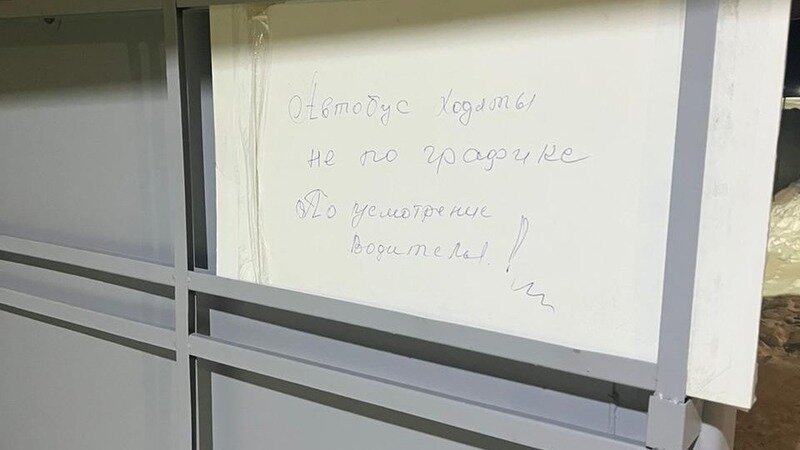 Автобус ходяты
не по графике
По усмотрение
водителя.!